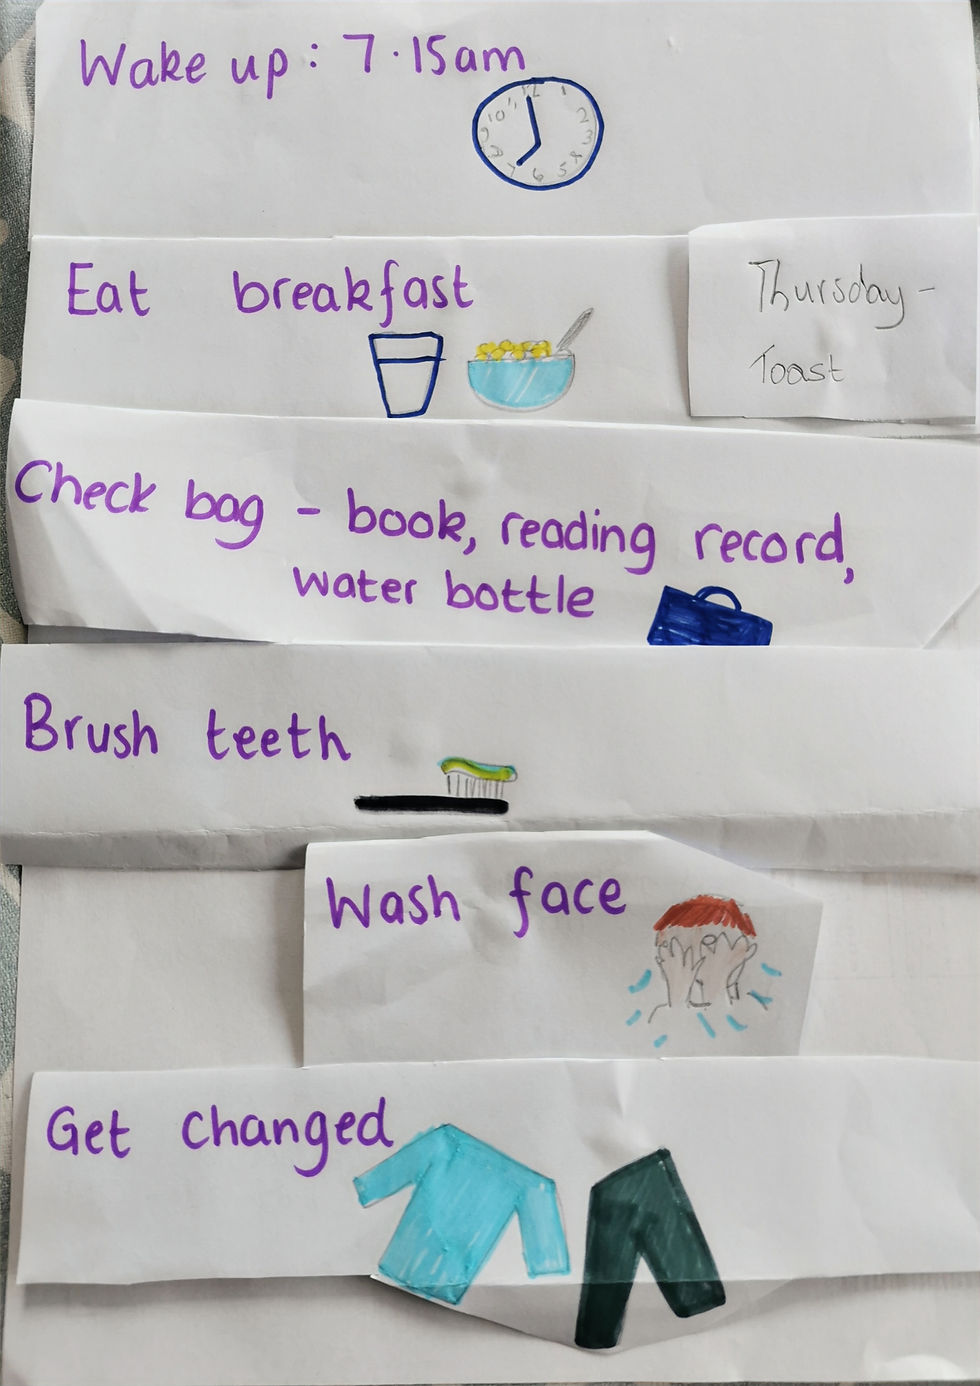 Wake up: 7.15am
12 1 2 3 4 5 6 7 8 9 10 11
Eat breakfast
Thursday -
Toast
Check bag - book, reading record,
water bottle
Brush teeth
Wash face
Get changed